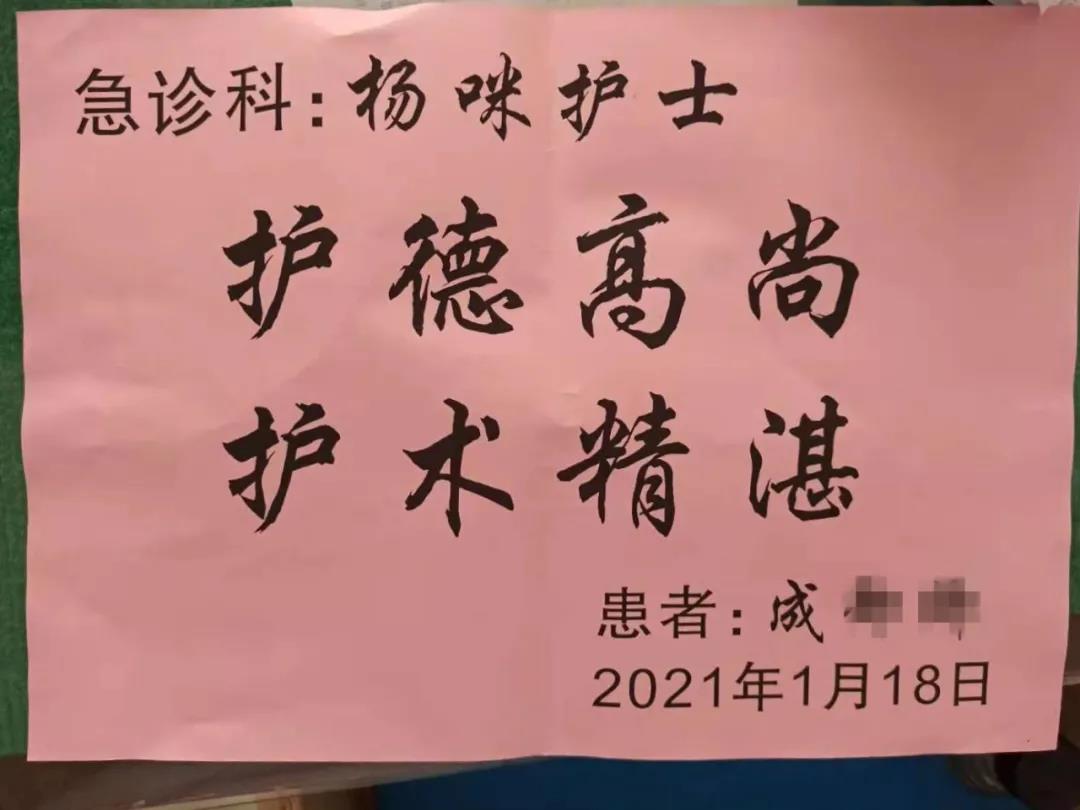 急诊科:杨咪护士
护德高尚
护术精湛
患者:成
2021年1月18日